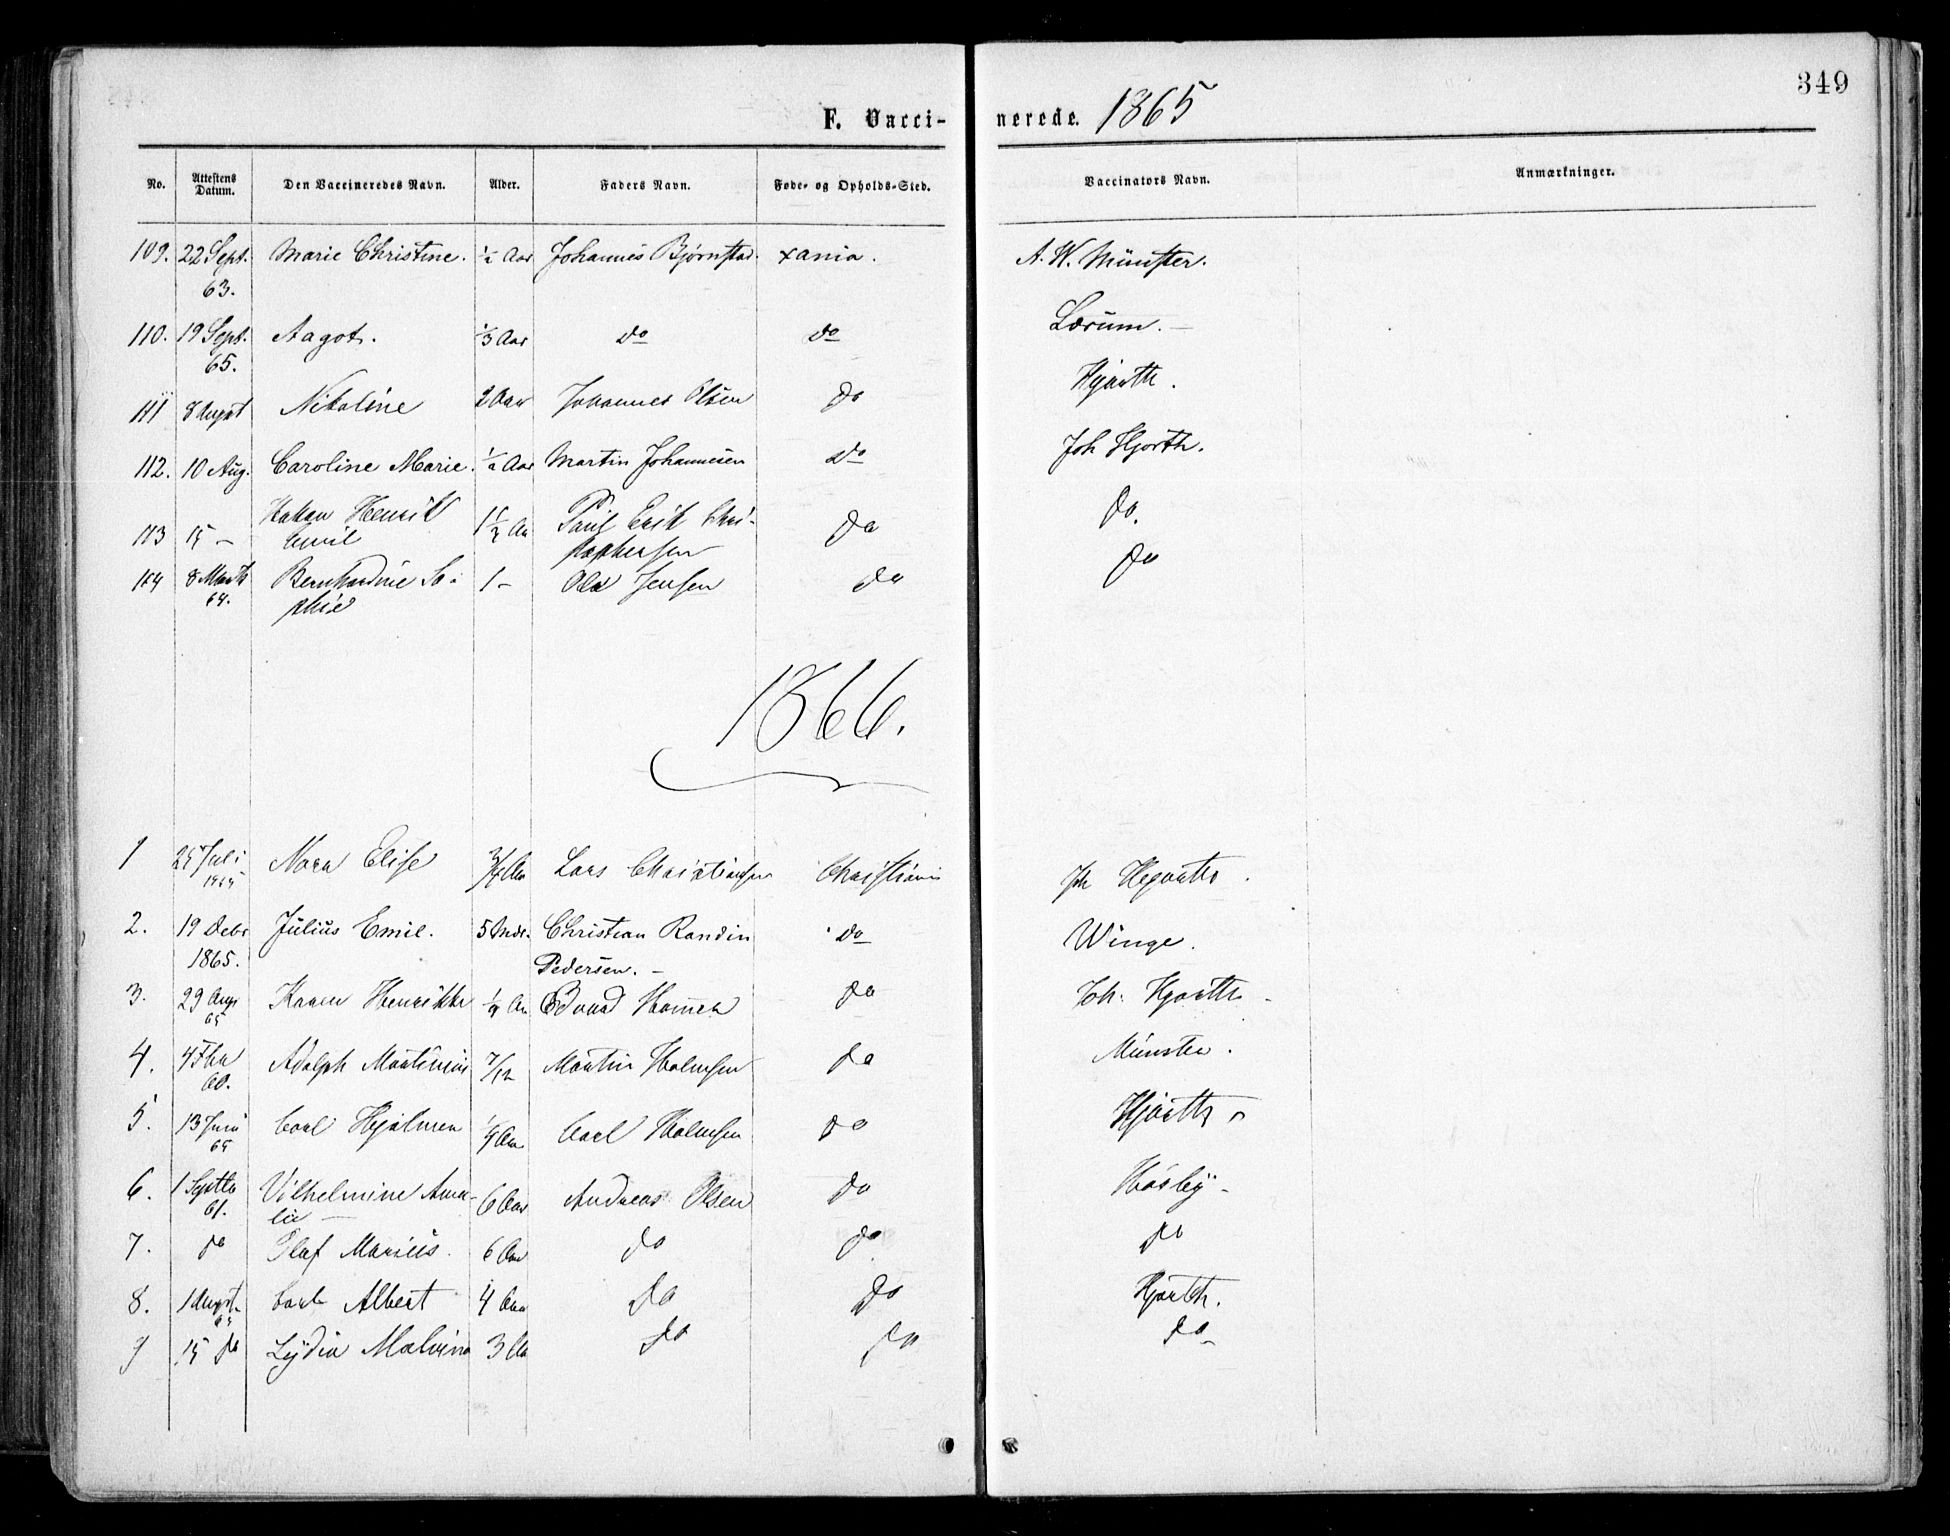 349
F. Vacci- nerede. 1865
No. Attestens Datum. Den Vaccineredes Navn. Alder. Faders Navn. Føde- og Opholds-Sted. Vaccinators Navn. Anmærkninger.
109. 22 Sept. 63. Marie Christine. Aar Johannes Bjørnstad. xania. A. W. Münster.
110. 19 Sept. 65. Aagot. 1/3 Aar do do Lærum. —
111 8 Augst Nikoline 2 Aar Johannes Olsen do Hjorth.
112. 10 Aug. Caroline Marie. Aar Martin Johannesen do Joh Hjorth.
113 15 — Hakon Henrik Emil 1 1/2 Aar Poul Erik Chri-
stophersen do do.
114 8 Marts 64. Bernhardine So-
phie 1 — Ole Jensen do do
1866.
1 25 Juli 1865 Nora Elise 3/4 Aar Lars Christiansen Christiania Joh Hjorth.
2. 19 Debr 1865. Julius Emil. 5 Mdr. Christian Randin
Pedersen. — do Winge.
3. 29 Aug 65 Karen Henrikke Aar Edvard Hansen do Joh. Hjorth —
4. 4 60. Adolph Martinius 7/12 Martin Holmsen do Münster.
5. 13 Juni 65 Carl Hjalmar Aar Carl Holmsen do Hjorth
6. 1 Septbr 61. Vilhelmine Ama-
lie — 6 Aar Andreas Olsen do Høsby —
7. do Olaf Marius. 6 Aar do do do
8. 1 Augst. 65 Carl Albert 4 Aar do do Hjorth.
9 15 do Lydia Malvina 3 Aar do do do —